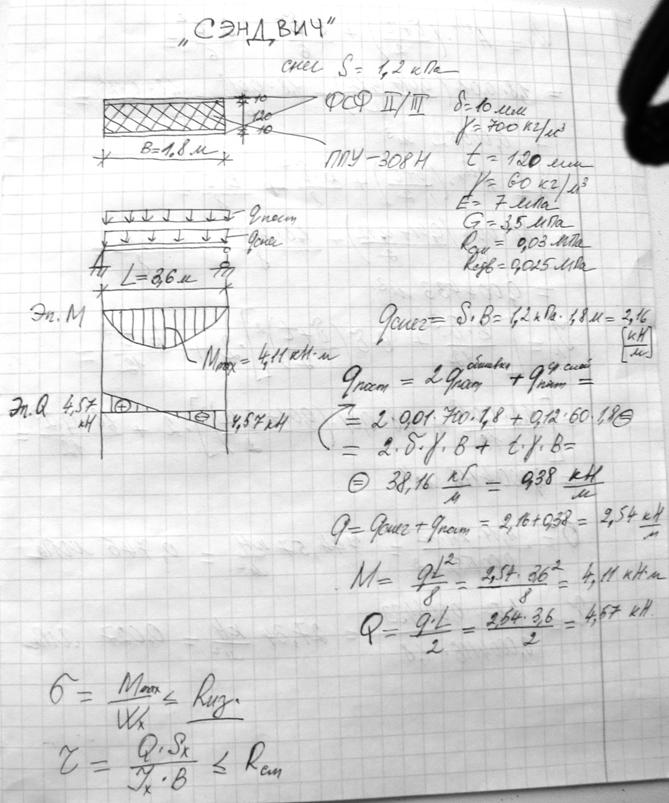 „СЭНДВИЧ"
снег S = 1,2 кПа
10
120
10
B=1,8 м
ФСФ II/III δ=10 мм
γ=700 кг/м³
ППУ-308Н t = 120 мм
γ= 60 кг/м³
E= 7 мПа
G= 3,5 мПа
= 0,03 мПа
Rсдв=0,025 мПа
qпост
qснег
L=3,6 м
Эп. M
Mmax = 4,11 кН·м
Эп. Q 4,57 кН
⊕
⊖
4,57 кН
qснег= S·B=1,2 кПа·1,8 м=2,16 [кН/м]
qпост = 2qпост обшивка + qпост ср слой =
= 2·0,01·700·1,8 + 0,12·60·1,8 ⊜
= 2·δ·γ·B + t·γ·B=
⊜ 38,16 кГ/м = 0,38 кН/м
q= qснег+qпост = 2,16+0,38 = 2,54 кН/м
M= qL²/8 = 2,54·3,6²/8 = 4,11 кН·м
Q= q·L/2 = 2,54·3,6/2 = 4,57 кН
σ = Mmax/Wx ≤ Rиз.
τ = Q·Sx/Jx·B ≤ Rсм